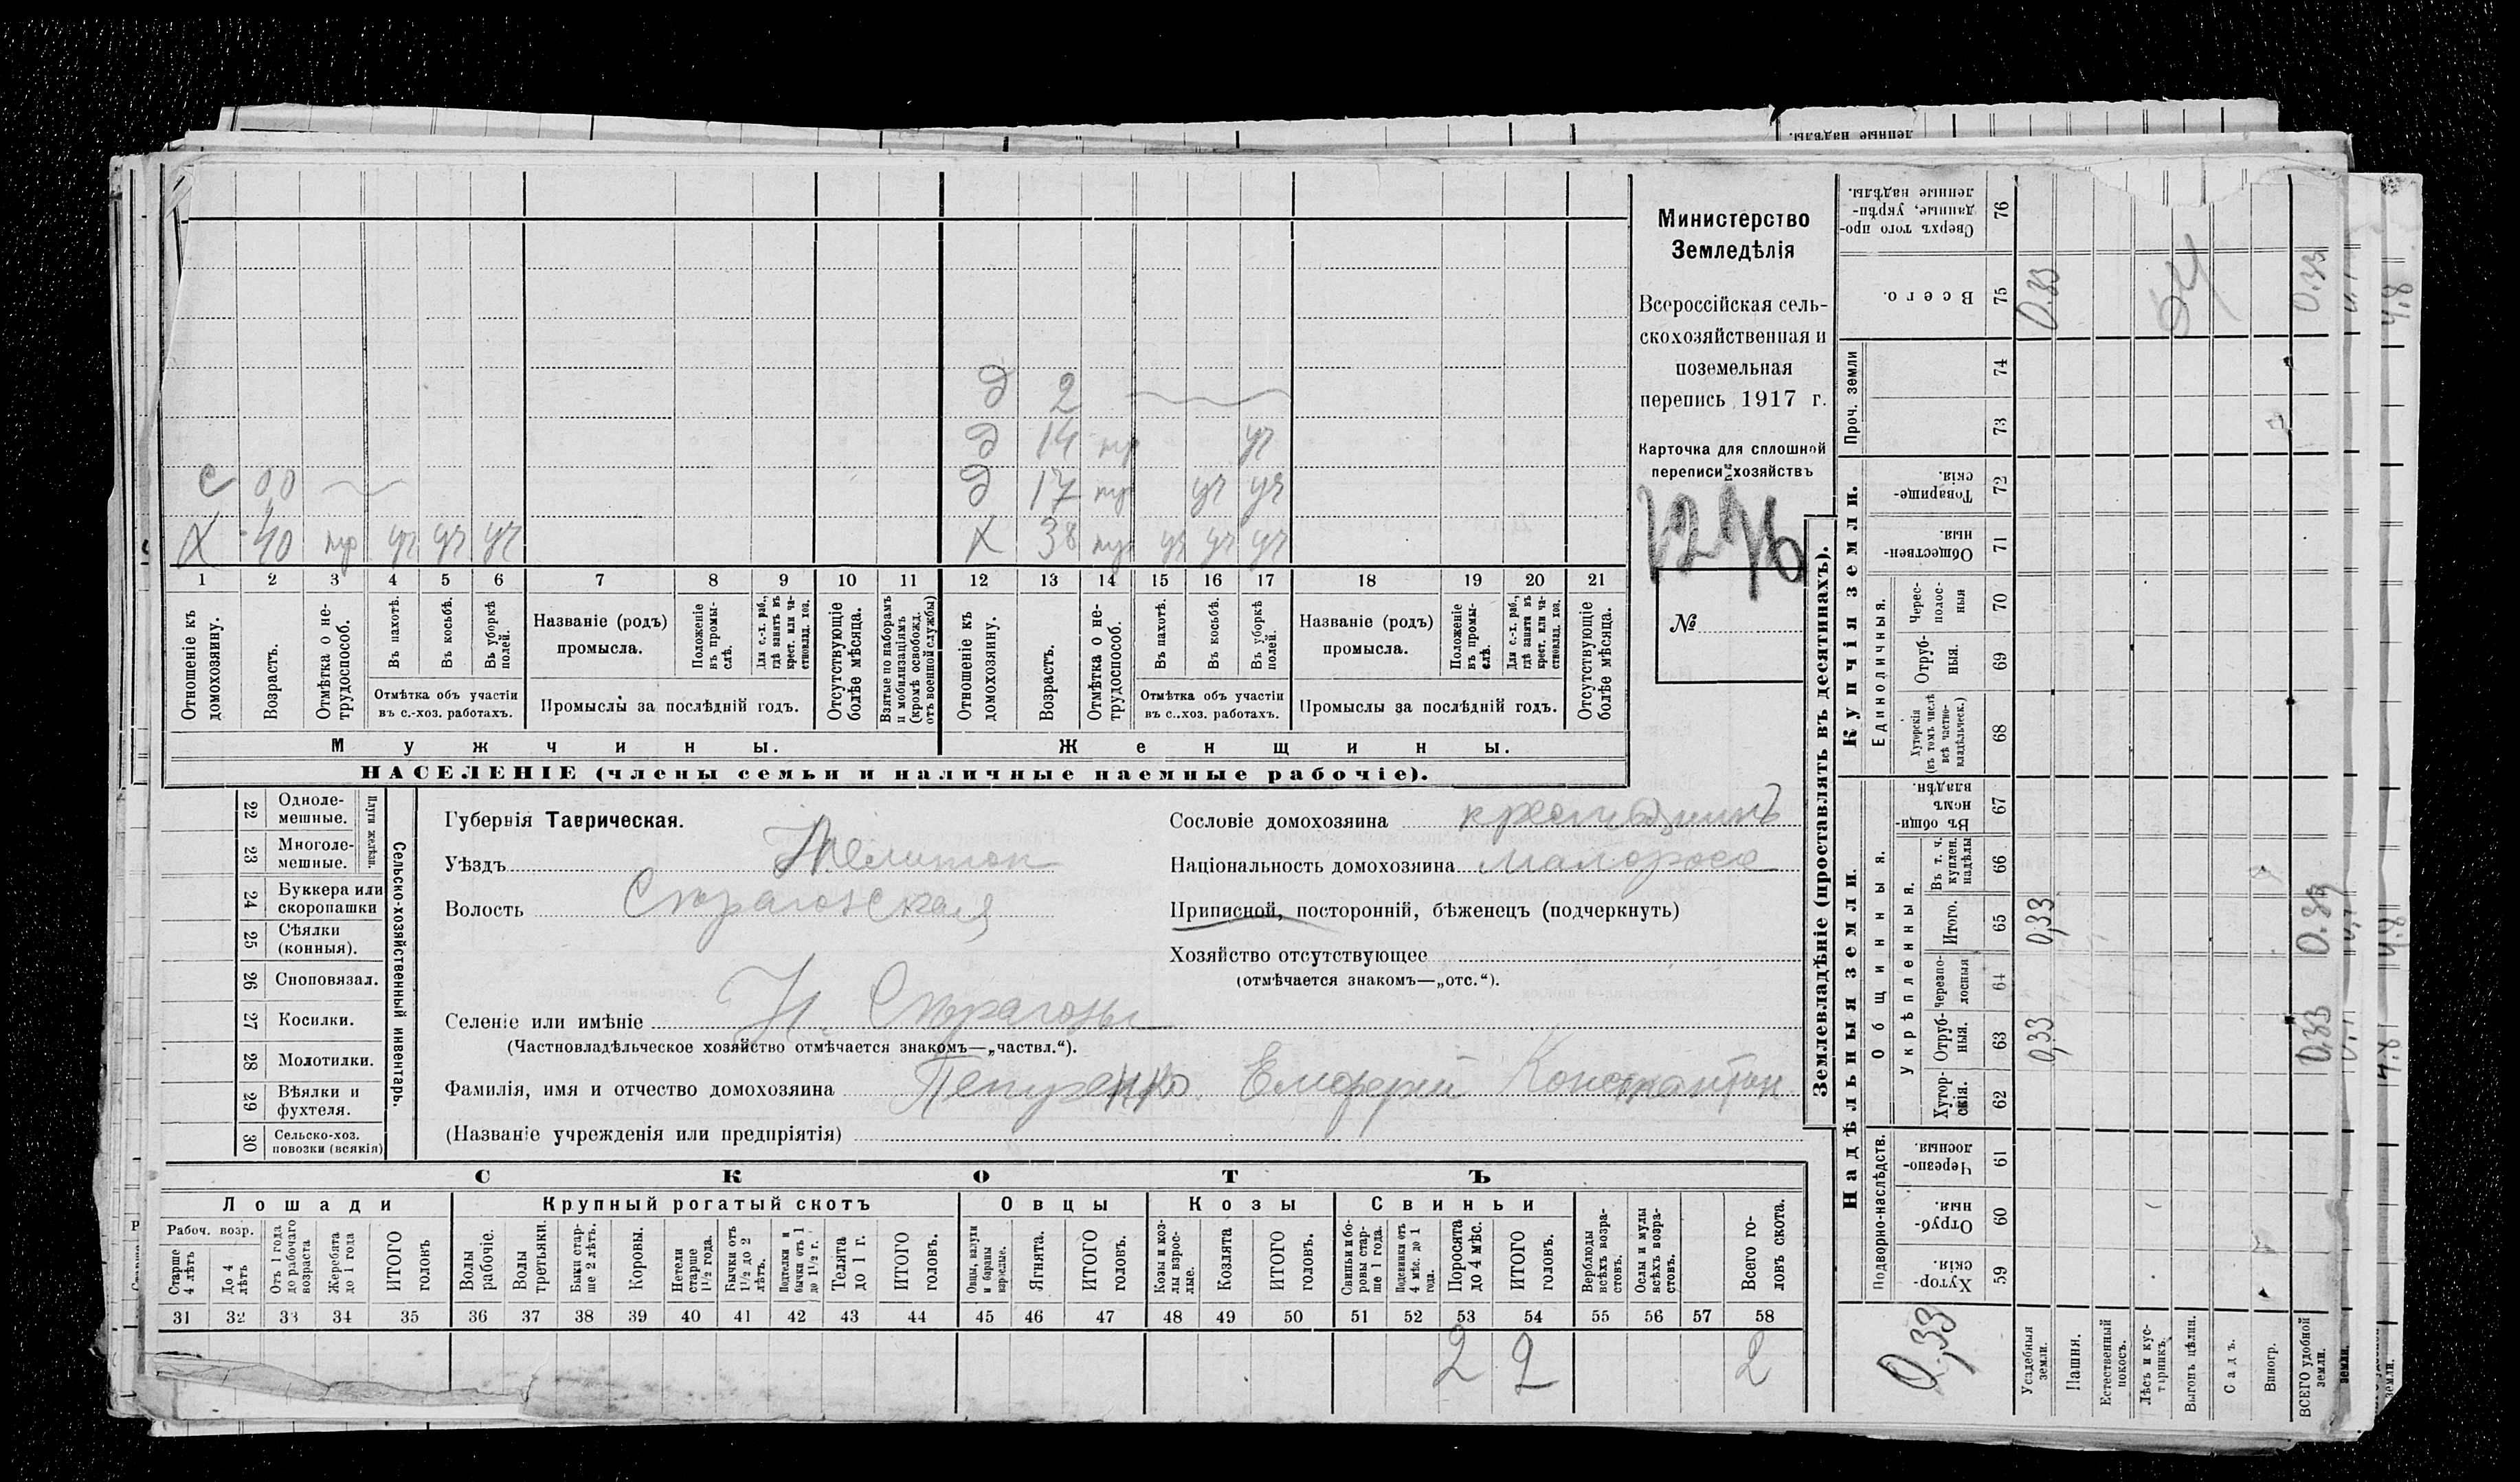 Министерство
Земледѣлія
Всероссійская сель-
скохозяйственная и
поземельная
перепись 1917 г.
Карточка для сплошной
переписи хозяйствъ
1276
№
д 2
д 14 нр уч
с 0,0 д 17 нр уч уч
Х 40 нр уч уч уч Х 38 нр уч уч уч
1 2 3 4 5 6 7 8 9 10 11 12 13 14 15 16 17 18 19 20 21
Отношеніе къ домохозяину.
Возрастъ.
Отмѣтка о не-трудоспособ.
Въ пахотѣ.
Въ косьбѣ.
Въ уборкѣ полей.
Отмѣтка объ участіи въ с.-хоз. работахъ.
Названіе (родъ) промысла.
Положеніе въ промы-слѣ.
Для с.-х. раб., гдѣ занятъ въ крест. или ча-стновлад. хоз.
Промыслы за послѣдній годъ.
Отсутствующіе болѣе мѣсяца.
Взятые по наборамъ и мобилизаціямъ (кромѣ освобожд. отъ военной службы)
Отношеніе къ домохозяину.
Возрастъ.
Отмѣтка о не-трудоспособ.
Въ пахотѣ.
Въ косьбѣ.
Въ уборкѣ полей.
Отмѣтка объ участіи въ с.-хоз. работахъ.
Названіе (родъ) промысла.
Положеніе въ промы-слѣ.
Для с.-х. раб., гдѣ занята въ крест. или ча-стновлад. хоз.
Промыслы за послѣдній годъ.
Отсутствующіе болѣе мѣсяца.
Мужчины. Женщины.
НАСЕЛЕНІЕ (члены семьи и наличные наемные рабочіе).
Сельско-хозяйственный инвентарь.
Плуги желѣзн.
22 Одноле-мешные.
23 Многоле-мешные.
24 Буккера или скоропашки
25 Сѣялки (конныя).
26 Сноповязал.
27 Косилки.
28 Молотилки.
29 Вѣялки и фухтеля.
30 Сельско-хоз. повозки (всякія)
Губернія Таврическая.
Уѣздъ Мелитоп
Волость Сѣрагозская
Селеніе или имѣніе Н. Сѣрагозы
(Частновладѣльческое хозяйство отмѣчается знакомъ—„частвл.“).
Фамилія, имя и отчество домохозяина Елиферій Константин
(Названіе учрежденія или предпріятія)
Сословіе домохозяина крестьянинъ
Національность домохозяина малоросс
Приписной, посторонній, бѣженецъ (подчеркнуть)
Хозяйство отсутствующее
(отмѣчается знакомъ—„отс.“).
СКОТЪ
Лошади Крупный рогатый скотъ Овцы Козы Свиньи
Рабоч. возр.
Старше 4 лѣтъ
До 4 лѣтъ
Отъ 1 года до рабочаго возраста
Жеребята до 1 года
ИТОГО головъ
Волы рабочіе.
Волы третьяки.
Быки стар-ше 2 лѣтъ.
Коровы.
Нетели старше 1½ года.
Бычки отъ 1½ до 2 лѣтъ.
Подтелки и бычки отъ 1 до 1½ г.
Телята до 1 г.
ИТОГО головъ.
Овцы, валухи и бараны взрослые.
Ягнята.
ИТОГО головъ.
Козы и коз-лы взрос-лые.
Козлята
ИТОГО головъ.
Свиньи и бо-ровы стар-ше 1 года.
Подсвинки отъ 4 мѣс. до 1 года.
Поросята до 4 мѣс.
ИТОГО головъ.
Верблюды всѣхъ возра-стовъ.
Ослы и мулы всѣхъ возра-стовъ.
Всего го-ловъ скота.
31 32 33 34 35 36 37 38 39 40 41 42 43 44 45 46 47 48 49 50 51 52 53 54 55 56 57 58
2 2 2
Землевладѣніе (проставлять въ десятинахъ).
Надѣльныя земли.
Купчія земли.
Проч. земли
Подворно-наслѣдств.
Общинныя.
Укрѣпленныя.
Единоличныя.
59 Хутор-скія.
60 Отруб-ныя.
61 Черезпо-лосныя
62 Хутор-скія.
63 Отруб-ныя.
64 Черезпо-лосныя
65 Итого.
66 Въ т. ч. куплен. надѣлы
67 Въ общин-номъ владѣн.
68 Хуторскія (въ томъ числѣ всѣ частно-владѣльческ.)
69 Отруб-ныя.
70 Черес-полос-ныя
71 Обществен-ныя.
72 Товарище-скія.
73
74
75 Всего.
76 Сверхъ того про-данные, укрѣп-ленные надѣлы.
Усадебныя земли.
Пашня.
Естественный покосъ.
Лѣсъ и кус-тарникъ.
Выгонъ цѣлин.
Садъ.
Виногр.
ВСЕГО удобной земли.
0,33
0,33 0,33 0.33
0.33 0.33 0.33
ленные надѣлы.
4.81 4.8 4.8
земли.